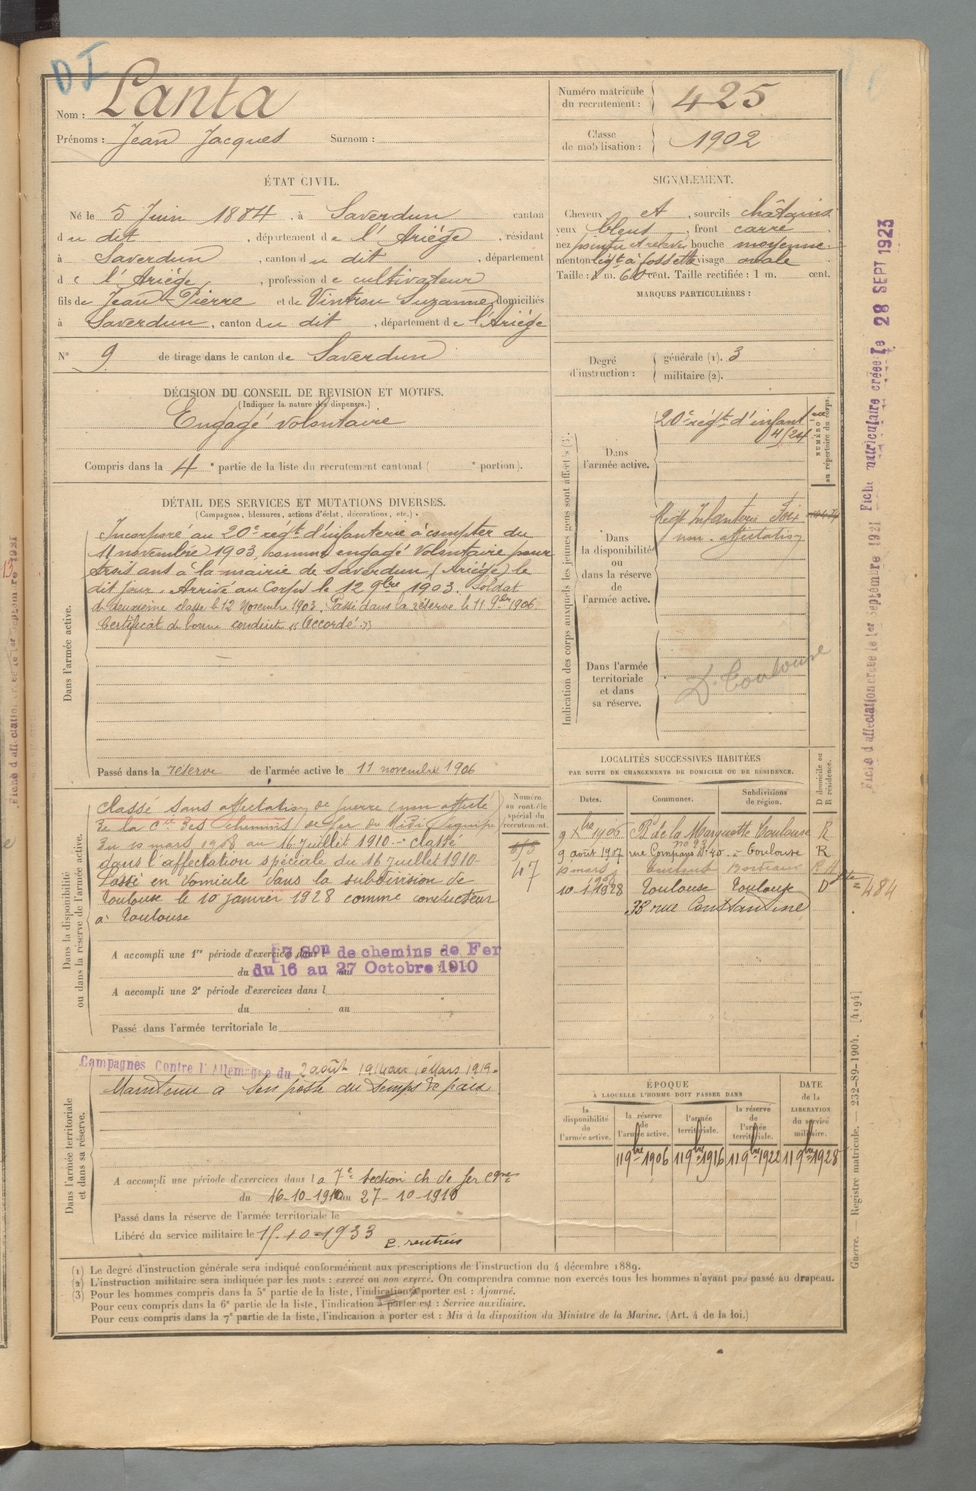 DI
Nom : Lanta
Prénoms : Jean Jacques Surnom :
Numéro matricule du recrutement : 425
Classe de mobilisation : 1902
ÉTAT CIVIL.
Né le 5 Juin 1884, à Saverdun canton
du dit, département de l'Ariège, résidant
à Saverdun, canton du dit, département
de l'Ariège, profession de cultivateur
fils de Jean Pierre et de Vintrou Suzanne, domiciliés
à Saverdun, canton du dit, département de l'Ariège
N° 9 de tirage dans le canton de Saverdun
SIGNALEMENT.
Cheveux et, sourcils châtains
yeux bleus, front carré
nez pointu et relevé bouche moyenne
menton lég^t à fossette visage ovale
Taille : 1 m. 60 cent. Taille rectifiée : 1 m. cent.
MARQUES PARTICULIÈRES :
Degré d'instruction : générale (1). 3
militaire (2).
DÉCISION DU CONSEIL DE REVISION ET MOTIFS.
(Indiquer la nature des dispenses.)
Engagé volontaire
Compris dans la 4e partie de la liste du recrutement cantonal ( e portion).
DÉTAIL DES SERVICES ET MUTATIONS DIVERSES.
(Campagnes, blessures, actions d'éclat, décorations, etc.)
Dans l'armée active.
Incorporé au 20e régt d'infanterie à compter du
11 novembre 1903, comme engagé volontaire pour
trois ans à la mairie de Saverdun (Ariège) le
dit jour. Arrivé au Corps le 12 9bre 1903. Soldat
de deuxième classe le 12 Novembre 1903. Passé dans la réserve le 11 9bre 1906
Certificat de bonne conduite « Accordé »
Passé dans la réserve de l'armée active le 11 novembre 1906
Indication des corps auxquels les jeunes gens sont affectés
Dans l'armée active.
20e régt d'infant
4/24
NUMÉRO au répertoire du corps.
Dans la disponibilité ou dans la réserve de l'armée active.
Régt Infanterie Foix
non affectation
Dans l'armée territoriale et dans sa réserve.
D. Toulouse
Dans la disponibilité ou dans la réserve de l'armée active.
Classé sans affectation de guerre (non affecté
de la Cie des chemins de fer du Midi (équipe
du 10 mars 1908 au 16 Juillet 1910 - Classé
dans l'affectation spéciale du 16 Juillet 1910 -
Passé en domicile dans la subdivision de
Toulouse le 10 janvier 1928 comme conducteur
à Toulouse
Numéro au contrôle spécial du recrutement.
47
A accompli une 1re période d'exercices dans
7 Son de chemins de Fer
du 16 au 27 Octobre 1910
A accompli une 2e période d'exercices dans l
du au
Passé dans l'armée territoriale le
LOCALITÉS SUCCESSIVES HABITÉES
PAR SUITE DE CHANGEMENTS DE DOMICILE OU DE RÉSIDENCE.
Dates. Communes. Subdivisions de région. D domicile ou R résidence.
9 Xbre 1906 de la Marquette Toulouse R
9 août 1907 rue Compans N° 40 Toulouse R
10 mars Bordeaux R
10-1-1928 Toulouse Toulouse D
33 rue Constantine
484
Dans l'armée territoriale et dans sa réserve.
Campagnes Contre l'Allemagne du 2 août 1914 au Mars 1919.
Maintenu à son poste du temps de paix
A accompli une période d'exercices dans la 7e section ch de fer cgne
du 16-10-1910 au 27-10-1910
Passé dans la réserve de l'armée territoriale le
Libéré du service militaire le 15-10-1933
ÉPOQUE
À LAQUELLE L'HOMME DOIT PASSER DANS
DATE de la LIBÉRATION du service militaire.
la disponibilité de l'armée active. la réserve de l'armée active. l'armée territoriale. la réserve de l'armée territoriale.
11 9bre 1906 11 9bre 1916 11 9bre 1922 11 9bre 1928
(1) Le degré d'instruction générale sera indiqué conformément aux prescriptions de l'instruction du 4 décembre 1889.
(2) L'instruction militaire sera indiquée par les mots : exercé ou non exercé. On comprendra comme non exercés tous les hommes n'ayant pas passé au drapeau.
(3) Pour les hommes compris dans la 5e partie de la liste, l'indication à porter est : Ajourné.
Pour ceux compris dans la 6e partie de la liste, l'indication à porter est : Service auxiliaire.
Pour ceux compris dans la 7e partie de la liste, l'indication à porter est : Mis à la disposition du Ministre de la Marine. (Art. 4 de la loi.)
Fiche d'affectation créée le 1er Septembre 1921 Fiche matriculaire créée le 28 SEPT 1923
Guerre. Registre matricule. 232-89-1904. [4194]